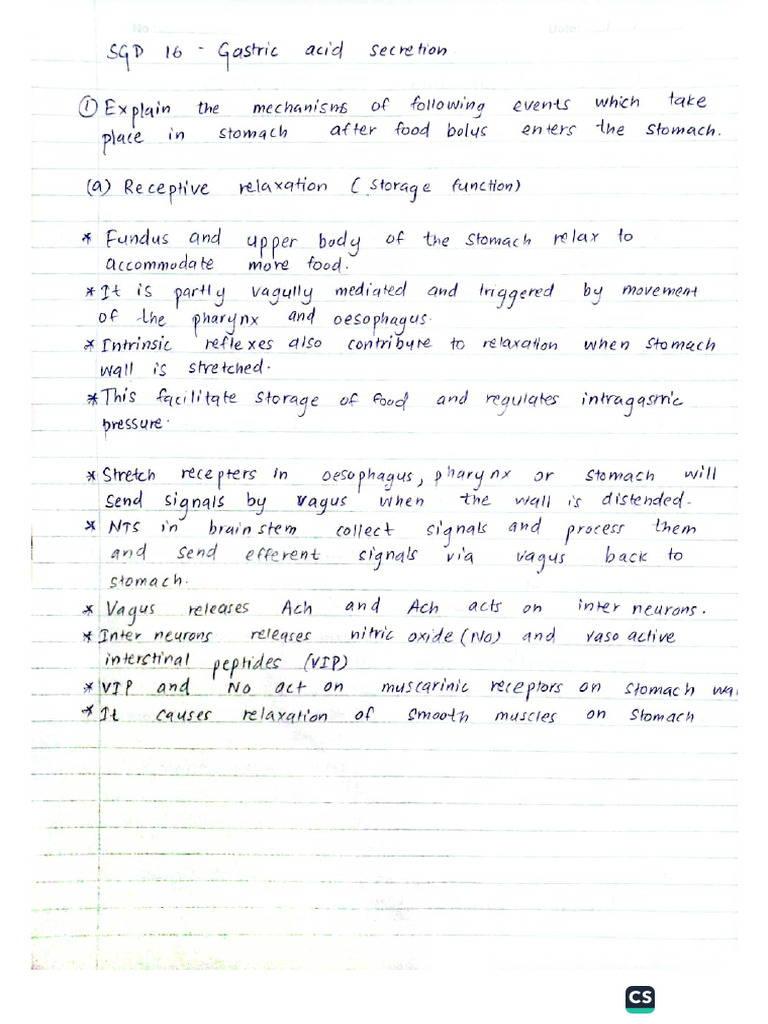 No :
Date:
SGD 16 - Gastric acid secretion
① Explain the mechanisms of following events which take
place in stomach after food bolus enters the stomach.
(a) Receptive relaxation ( storage function)
* Fundus and upper body of the stomach relax to
accommodate more food.
* It is partly vagully mediated and triggered by movement
of the pharynx and oesophagus.
* Intrinsic reflexes also contribute to relaxation when stomach
wall is stretched.
* This facilitate storage of food and regulates intragastric
pressure.
* Stretch recepters in oesophagus, pharynx or stomach will
send signals by vagus when the wall is distended.
* NTS in brain stem collect signals and process them
and send efferent signals via vagus back to
stomach.
* Vagus releases Ach and Ach acts on inter neurons.
* Inter neurons releases nitric oxide (No) and vaso active
interstinal peptides (VIP)
* VIP and No act on muscarinic receptors on stomach wal
* It causes relaxation of smooth muscles on stomach
CS